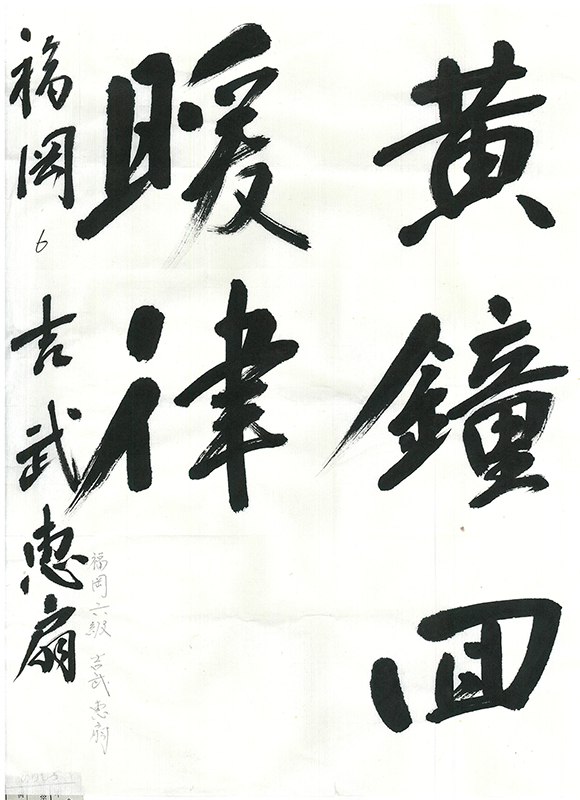 黄鐘回
暖律
福岡 6 吉武惠扇
福岡六級 吉武惠扇